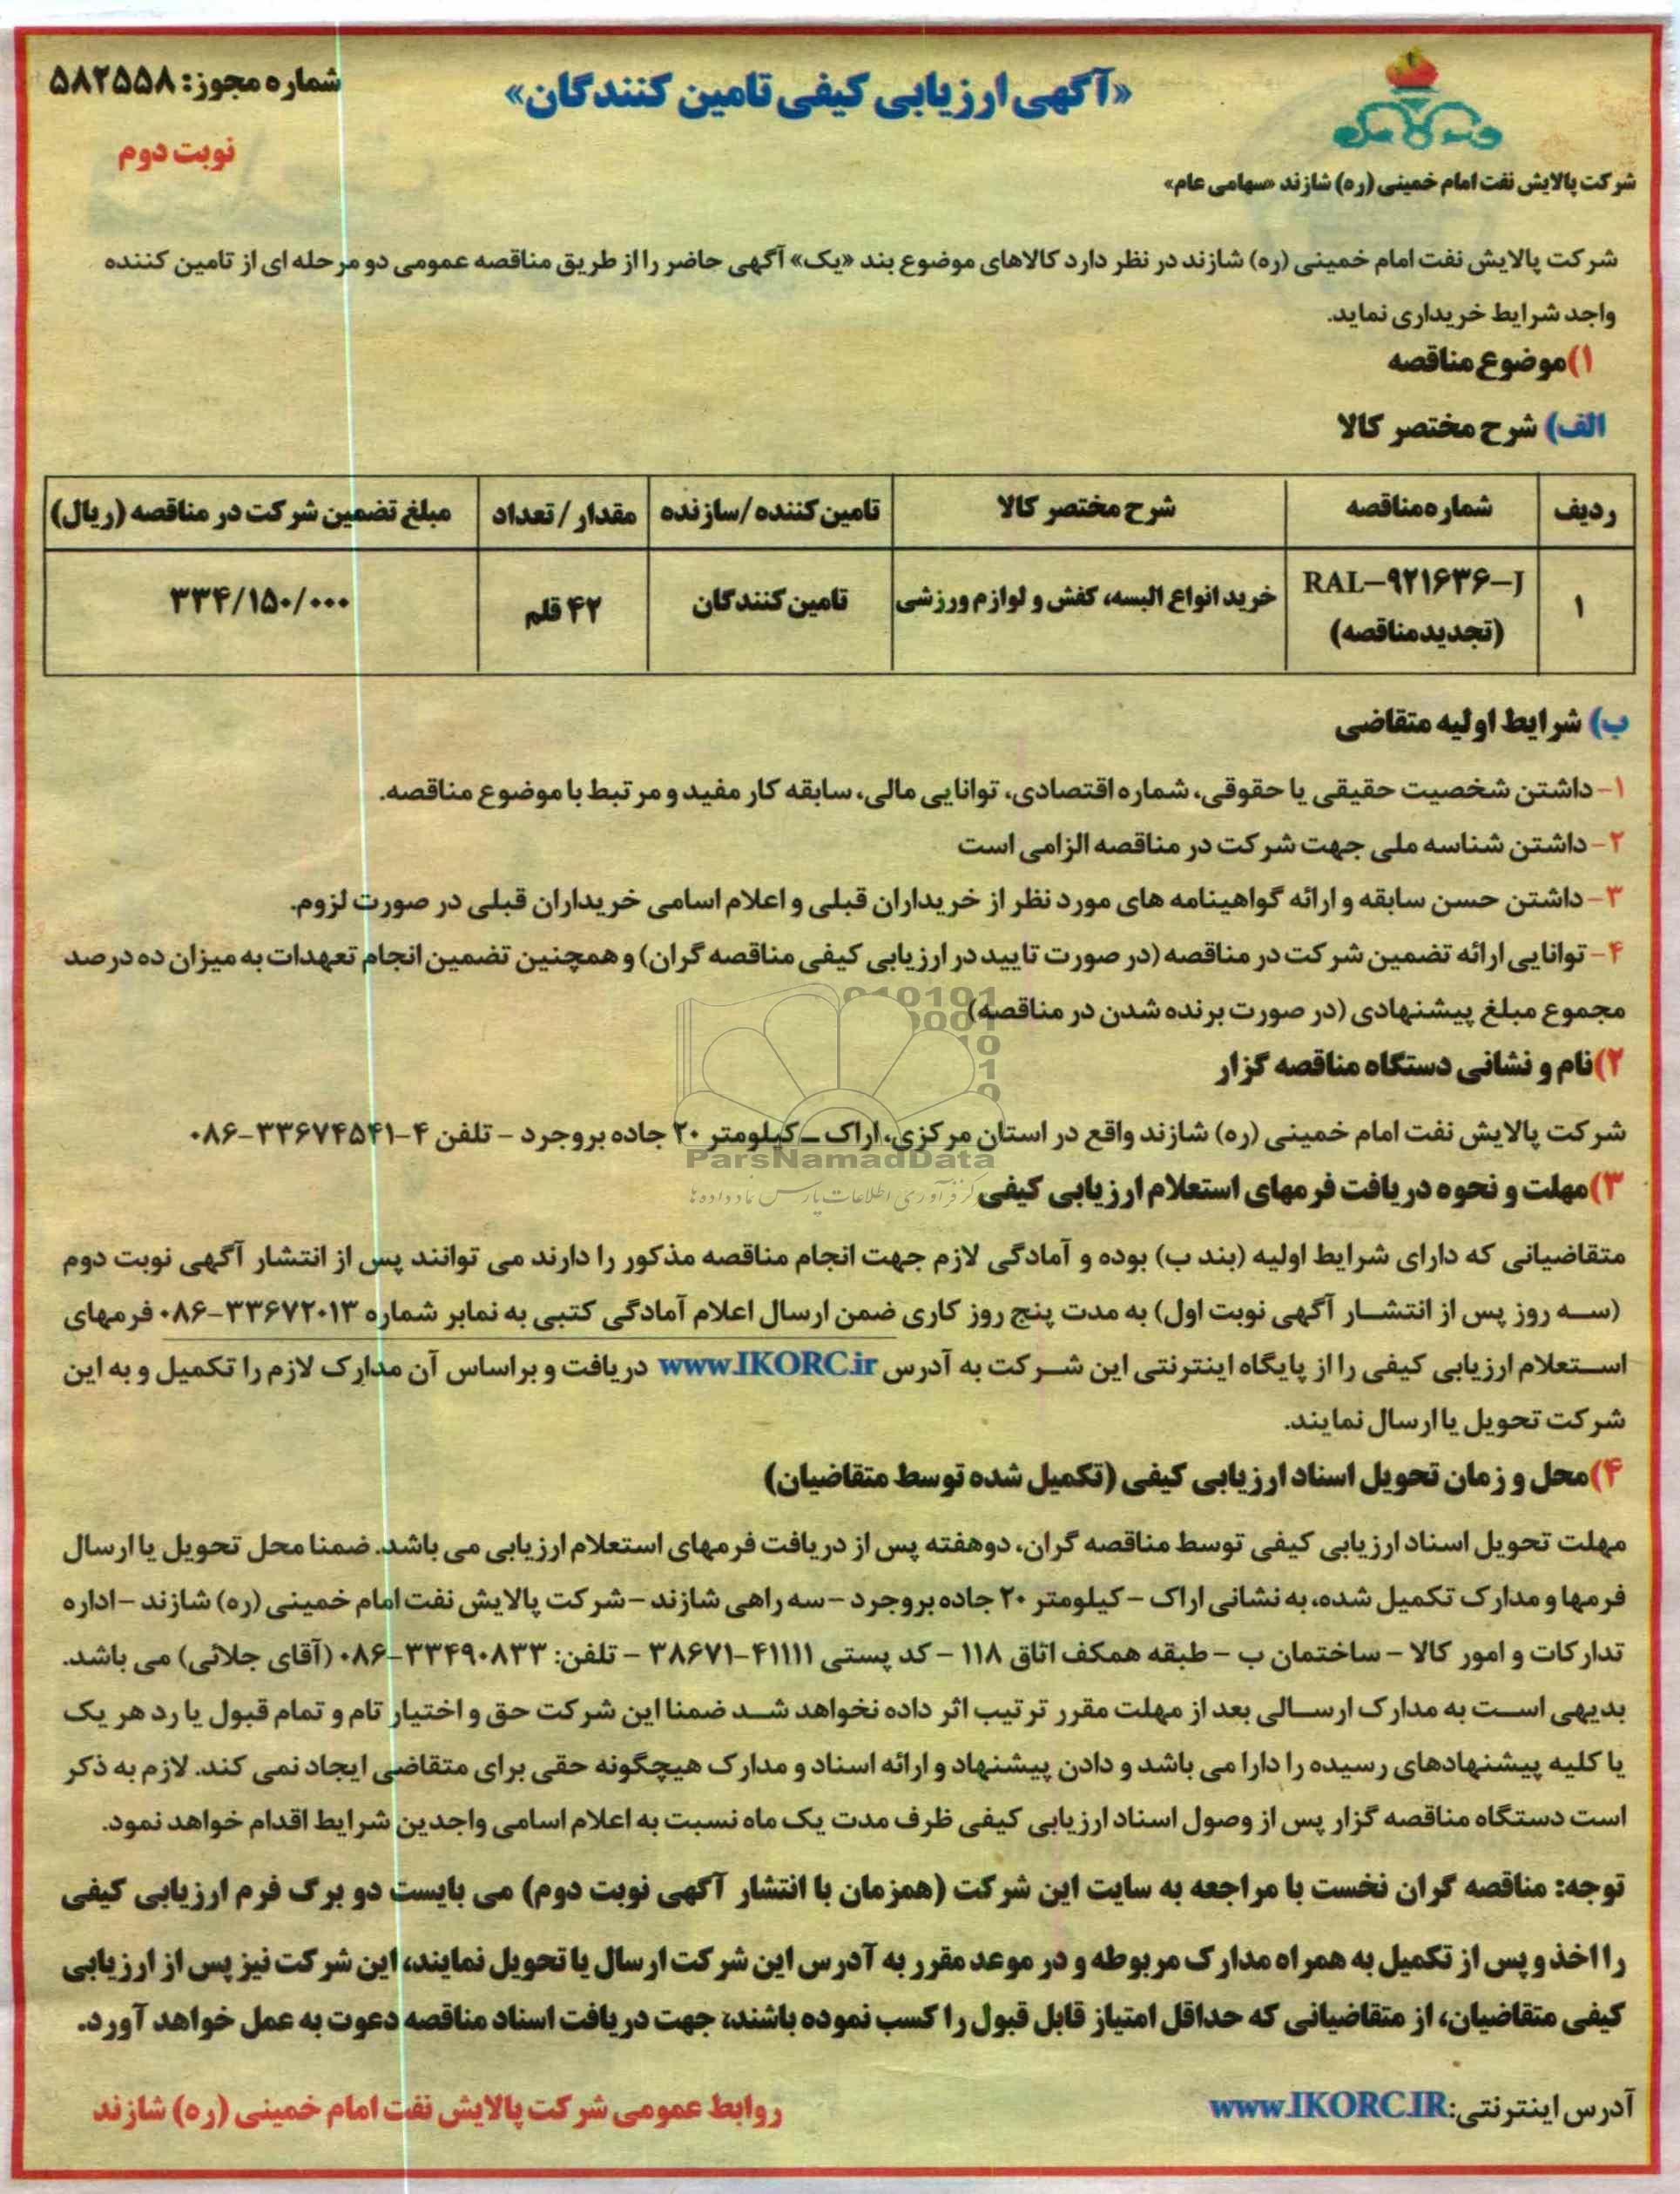 «آگهی ارزیابی کیفی تامین کنندگان»
شماره مجوز: ۵۸۲۵۵۸
نوبت دوم
شرکت پالایش نفت امام خمینی (ره) شازند «سهامی عام»
شرکت پالایش نفت امام خمینی (ره) شازند در نظر دارد کالاهای موضوع بند «یک» آگهی حاضر را از طریق مناقصه عمومی دو مرحله ای از تامین کننده
واجد شرایط خریداری نماید.
۱) موضوع مناقصه
الف) شرح مختصر کالا
ردیف | شماره مناقصه | شرح مختصر کالا | تامین کننده / سازنده | مقدار / تعداد | مبلغ تضمین شرکت در مناقصه (ریال)
۱ | RAL-۹۲۱۶۳۶-J (تجدید مناقصه) | خرید انواع البسه، کفش و لوازم ورزشی | تامین کنندگان | ۴۲ قلم | ۳۳۴/۱۵۰/۰۰۰
ب) شرایط اولیه متقاضی
۱- داشتن شخصیت حقیقی یا حقوقی، شماره اقتصادی، توانایی مالی، سابقه کار مفید و مرتبط با موضوع مناقصه.
۲- داشتن شناسه ملی جهت شرکت در مناقصه الزامی است
۳- داشتن حسن سابقه و ارائه گواهینامه های مورد نظر از خریداران قبلی و اعلام اسامی خریداران قبلی در صورت لزوم.
۴- توانایی ارائه تضمین شرکت در مناقصه (در صورت تایید در ارزیابی کیفی مناقصه گران) و همچنین تضمین انجام تعهدات به میزان ده درصد
مجموع مبلغ پیشنهادی (در صورت برنده شدن در مناقصه)
۲) نام و نشانی دستگاه مناقصه گزار
شرکت پالایش نفت امام خمینی (ره) شازند واقع در استان مرکزی، اراک ـ کیلومتر ۲۰ جاده بروجرد - تلفن ۴-۳۳۶۷۴۵۴۱-۰۸۶
ParsNamadData
۳) مهلت و نحوه دریافت فرمهای استعلام ارزیابی کیفی
متقاضیانی که دارای شرایط اولیه (بند ب) بوده و آمادگی لازم جهت انجام مناقصه مذکور را دارند می توانند پس از انتشار آگهی نوبت دوم
(سه روز پس از انتشار آگهی نوبت اول) به مدت پنج روز کاری ضمن ارسال اعلام آمادگی کتبی به نمابر شماره ۳۳۶۷۲۰۱۳-۰۸۶ فرمهای
استعلام ارزیابی کیفی را از پایگاه اینترنتی این شرکت به آدرس www.IKORC.ir دریافت و براساس آن مدارک لازم را تکمیل و به این
شرکت تحویل یا ارسال نمایند.
۴) محل و زمان تحویل اسناد ارزیابی کیفی (تکمیل شده توسط متقاضیان)
مهلت تحویل اسناد ارزیابی کیفی توسط مناقصه گران، دوهفته پس از دریافت فرمهای استعلام ارزیابی می باشد. ضمنا محل تحویل یا ارسال
فرمها و مدارک تکمیل شده، به نشانی اراک - کیلومتر ۲۰ جاده بروجرد - سه راهی شازند - شرکت پالایش نفت امام خمینی (ره) شازند - اداره
تدارکات و امور کالا - ساختمان ب - طبقه همکف اتاق ۱۱۸ - کد پستی ۴۱۱۱۱-۳۸۶۷۱ - تلفن: ۳۳۴۹۰۸۳۳-۰۸۶ (آقای جلائی) می باشد.
بدیهی است به مدارک ارسالی بعد از مهلت مقرر ترتیب اثر داده نخواهد شد ضمنا این شرکت حق و اختیار تام و تمام قبول یا رد هر یک
یا کلیه پیشنهادهای رسیده را دارا می باشد و دادن پیشنهاد و ارائه اسناد و مدارک هیچگونه حقی برای متقاضی ایجاد نمی کند. لازم به ذکر
است دستگاه مناقصه گزار پس از وصول اسناد ارزیابی کیفی ظرف مدت یک ماه نسبت به اعلام اسامی واجدین شرایط اقدام خواهد نمود.
توجه: مناقصه گران نخست با مراجعه به سایت این شرکت (همزمان با انتشار آگهی نوبت دوم) می بایست دو برگ فرم ارزیابی کیفی
را اخذ و پس از تکمیل به همراه مدارک مربوطه و در موعد مقرر به آدرس این شرکت ارسال یا تحویل نمایند، این شرکت نیز پس از ارزیابی
کیفی متقاضیان، از متقاضیانی که حداقل امتیاز قابل قبول را کسب نموده باشند، جهت دریافت اسناد مناقصه دعوت به عمل خواهد آورد.
آدرس اینترنتی: www.IKORC.IR
روابط عمومی شرکت پالایش نفت امام خمینی (ره) شازند